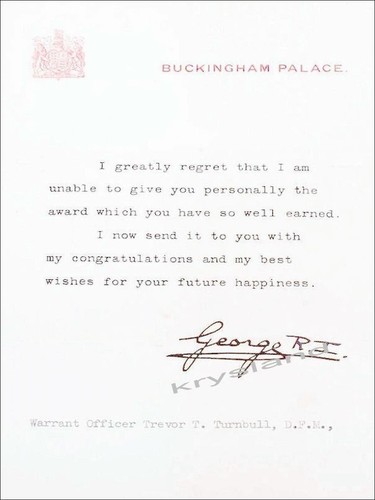 BUCKINGHAM PALACE.
I greatly regret that I am
unable to give you personally the
award which you have so well earned.
I now send it to you with
my congratulations and my best
wishes for your future happiness.
George R.I.
krysland
Warrant Officer Trevor T. Turnbull, D.F.M.,